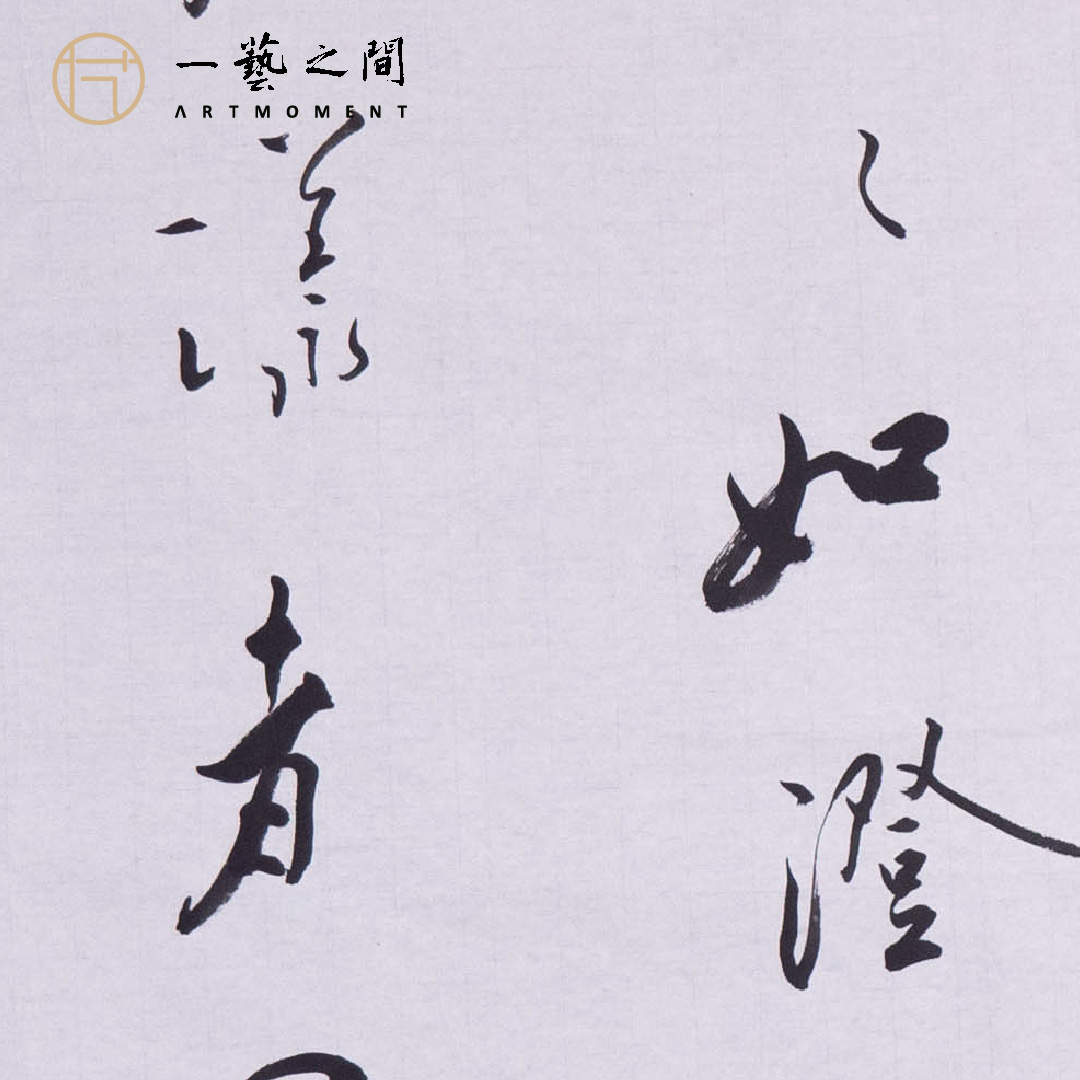 一藝之間
ARTMOMENT
如澄
漾者